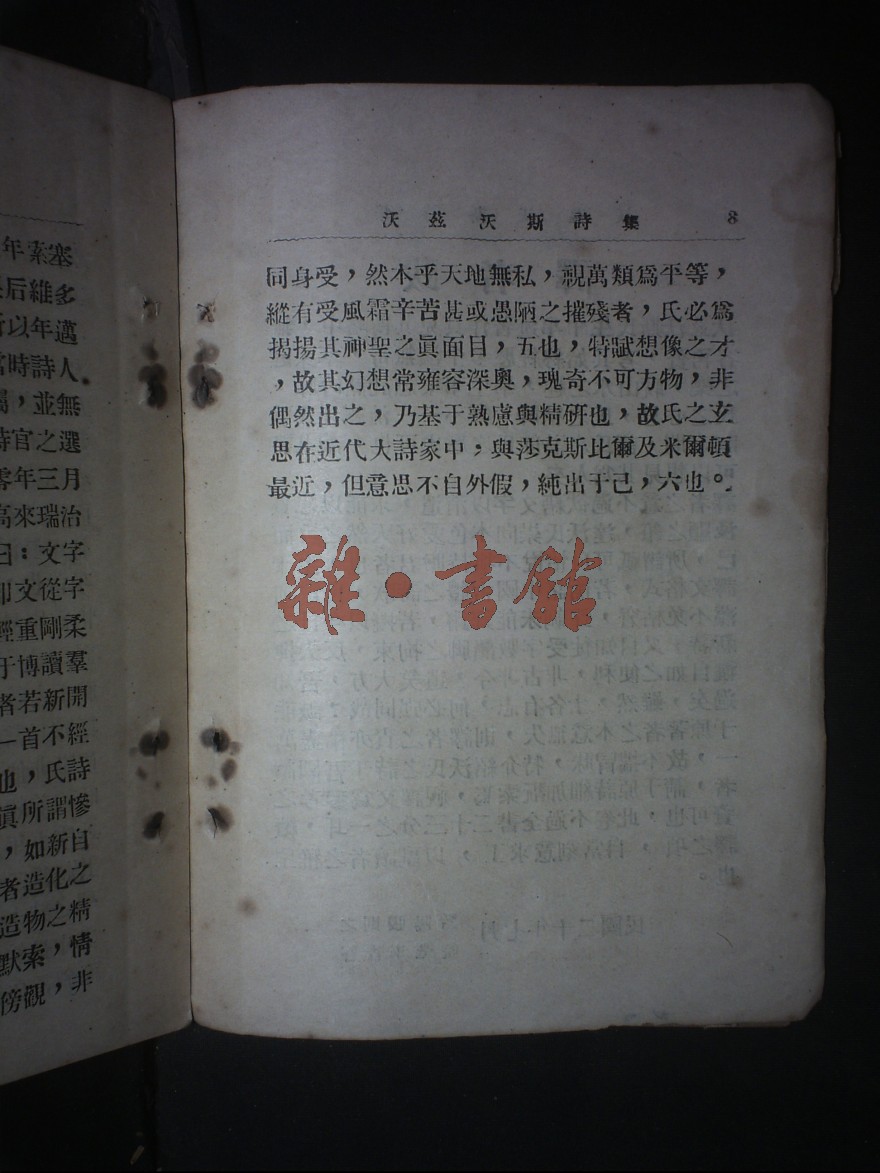 年索塞
后維多
以年邁
時詩人
，並無
官之選
年三月
高來瑞治
曰：文字
文從字
輕重剛柔
于博讀羣
者若新開
一首不經
也，氏詩
眞所謂慘
，如新自
者造化之
造物之精
默索，情
傍觀，非
沃茲沃斯詩集 8
同身受，然本乎天地無私，視萬類爲平等，
縱有受風霜辛苦甚或愚陋之摧殘者，氏必爲
揭揚其神聖之眞面目，五也，特賦想像之才
，故其幻想常雍容深奧，瑰奇不可方物，非
偶然出之，乃基于熟慮與精研也，故氏之玄
思在近代大詩家中，與莎克斯比爾及米爾頓
最近，但意思不自外假，純出于己，六也。
雜·書館